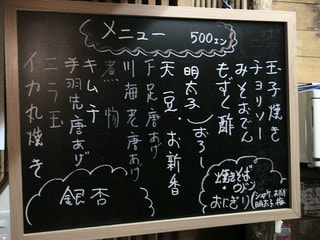 メニュー 500エン
玉子焼き
チョリソー
みそおでん
もずく酢
明太子おろし
天豆・お新香
下足唐あげ
川海老唐あげ
煮物
キムチ
手羽先唐あげ
ニラ玉
イカ丸焼き
焼きそば
ウドン
おにぎり(シャケ、おかか
明太子 梅
銀杏